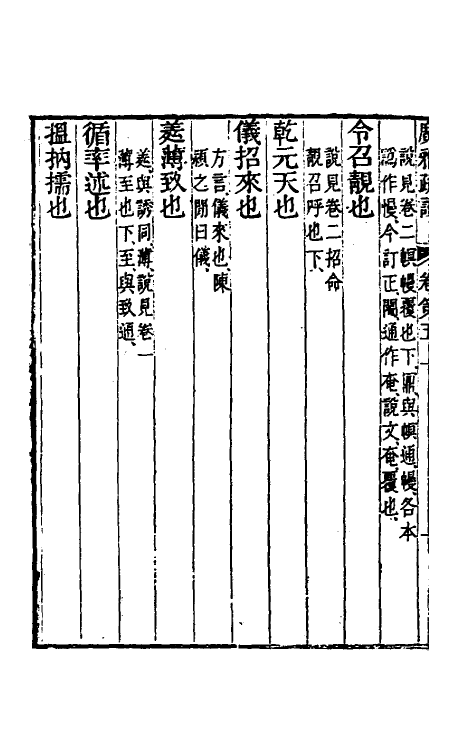 廣雅疏證 卷第五
說見卷二幎幔覆也下鼏與幎通幔各本
譌作慢今訂正闇通作奄說文奄覆也
令召靚也
說見卷二招命
靚召呼也下
乾元天也
儀招來也
方言儀來也陳
潁之閒曰儀
羑薄致也
羑與誘同薄說見卷一
薄至也下至與致通
循率述也
搵抐擩也